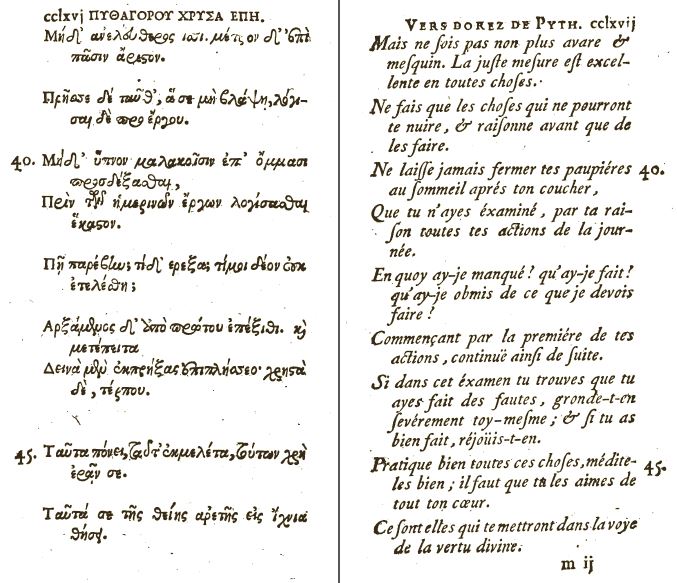 cclxvj ΠΥΘΑΓΟΡΟΥ ΧΡΥΣΑ ΕΠΗ.
Μηδ' ἀνελεύθερος ἴσθι. μέτρον δ' ἐπὶ
πᾶσιν ἄριστον.
Πρῆσσε δὲ ταῦθ', ἅ σε μὴ βλάψῃ, λόγι-
σαι δὲ πρὸ ἔργου.
40. Μηδ' ὕπνον μαλακοῖσιν ἐπ' ὄμμασι
προσδέξασθαι,
Πρὶν τῶν ἡμερινῶν ἔργων λογίσασθαι
ἕκαστον.
Πῆ παρέβην; τί δ' ἔρεξα; τί μοι δέον οὐκ
ἐτελέσθη;
Ἀρξάμενος δ' ἀπὸ πρώτου ἐπέξιθι. καὶ
μετέπειτα
Δεινὰ μὲν ἐκπρήξας ἐπιπλήσσεο· χρηστὰ
δὲ, τέρπου.
45. Ταῦτα πόνει, ταῦτ' ἐκμελέτα, τούτων χρὴ
ἐρᾷν σε.
Ταῦτά σε τῆς θείης ἀρετῆς εἰς ἴχνια
θήσει.
VERS DOREZ DE PYTH. cclxvij
Mais ne sois pas non plus avare &
mesquin. La juste mesure est excel-
lente en toutes choses.
Ne fais que les choses qui ne pourront
te nuire, & raisonne avant que de
les faire.
Ne laisse jamais fermer tes paupiéres 40.
au sommeil aprés ton coucher,
Que tu n'ayes éxaminé, par ta rai-
son toutes tes actions de la jour-
née.
En quoy ay-je manqué? qu'ay-je fait?
qu'ay-je obmis de ce que je devois
faire?
Commençant par la premiére de tes
actions, continuë ainsi de suite.
Si dans cet éxamen tu trouves que tu
ayes fait des fautes, gronde-t-en
sevérement toy-mesme; & si tu as
bien fait, réjoüis-t-en.
Pratique bien toutes ces choses, médite- 45.
les bien; il faut que tu les aimes de
tout ton cœur.
Ce sont elles qui te mettront dans la voye
de la vertu divine.
m ij